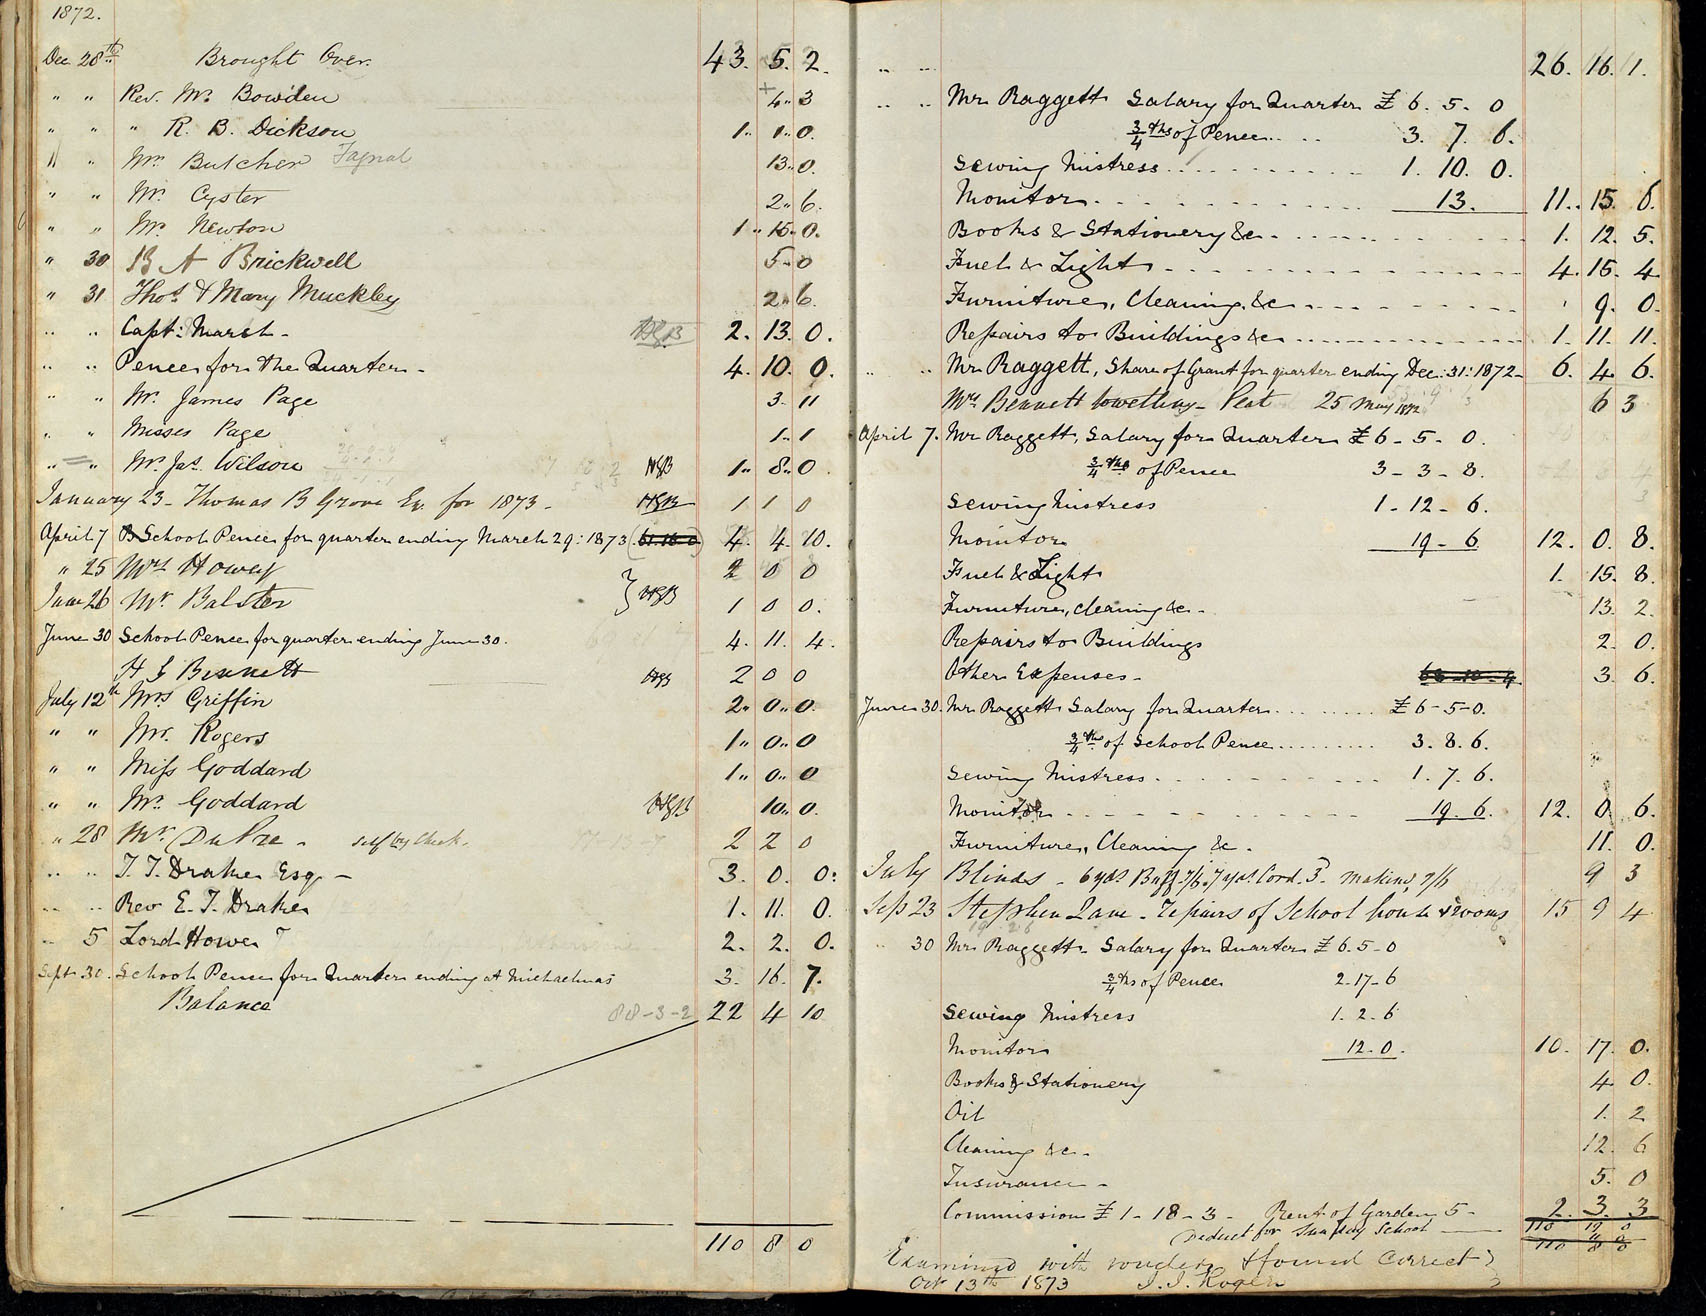 1872.
Dec 28th Brought Over. 43. 5. 2.
" " Rev. Mr. Bowden 4.. 3
" " " R. B. Dickson 1.. 1.. 0.
" " Mr. Butcher 13.. 0.
" " Mr. Cyster 2.. 6.
" " Mr. Newton 1.. 15.. 0.
" 30 B A Brickwell 5.. 0
" 31 Thos. & Mary Muckley 2.. 6.
" " Capt: Marsh - HGB 2. 13. 0.
" " Pence for the Quarter - 4. 10. 0.
" " Mr. James Page 3. 11
" " Misses Page 1.. 1
" " Mr. Jas. Wilson HGB 1.. 8.. 0
January 23 - Thomas B Grove Esq. for 1873 - HGB 1 1 0
April 7 School Pence for quarter ending March 29: 1873 4. 4. 10.
" 25 Mrs Howay 2 0 0
June 26 Mr. Balster HGB 1 0 0.
June 30 School Pence for quarter ending June 30. 4. 11. 4.
H G Bennett HGB 2 0 0
July 12th Mrs Griffin 2.. 0.. 0.
" " Mr. Rogers 1.. 0.. 0
" " Miss Goddard 1.. 0.. 0
" " Mr. Goddard HGB 10.. 0.
" 28 Mr. DuPre - self by Check. 2 2 0
" " T. T. Drake Esq - 3. 0. 0:
" " Rev E. T. Drake 1. 11. 0.
" 5 Lord Howe 2. 2. 0.
Sept 30. School Pence for Quarter ending at Michaelmas 3. 16. 7.
Balance 88-3-2 22 4 10
110 8 0
" " 26. 16. 1.
" " Mr Raggett Salary for Quarter £ 6. 5. 0
3/4 ths of Pence.... 3. 7. 6.
Sewing Mistress........... 1. 10. 0.
Monitor........... 13. 11.. 15. 6.
Books & Stationery &c........... 1. 12. 5.
Fuel & Light........... 4. 15. 4
Furniture, Cleaning, &c........... 9. 0.
Repairs to Buildings &c........... 1. 11. 11.
" " Mr Raggett, Share of Grant for quarter ending Dec: 31: 1872- 6. 4. 6.
Mrs Bennett towelling - Peat 25 May 1872 6 3
April 7. Mr Raggett, Salary for Quarter £ 6 - 5 - 0.
3/4 ths of Pence 3 - 3 - 8.
Sewing Mistress 1 - 12 - 6.
Monitor 19 - 6 12. 0. 8.
Fuel & Light 1. 15. 8.
Furniture, cleaning &c. - 13. 2.
Repairs to Buildings 2. 0.
Other Expenses - 3. 6.
June 30. Mr Raggett Salary for Quarter......... £ 6 - 5 - 0.
3/4 ths of School Pence......... 3. 8. 6.
Sewing Mistress........... 1. 7. 6.
Monitor........... 19. 6. 12. 0. 6.
Furniture, Cleaning &c. 11. 0.
July Blinds - 6 yds. Buff 7/6. 7 yds. Cord. 3. making 1/6 9 3
Sep 23 Stephen Lane - repairs of School house & rooms 15 9 4
" 30 Mr Raggett Salary for Quarter £ 6. 5 - 0
3/4 ths of Pence 2 - 17 - 6
Sewing Mistress 1. 2 - 6
Monitor 12. 0. 10. 17. 0.
Books & Stationery 4 0.
Oil 1. 2
Cleaning &c. - 12. 6
Insurance - 5. 0
Commission £ 1 - 18 - 3 - Rent of Garden 5 - 2. 3. 3
Deduct for Sunday School
110 8 0
Examined with vouchers & found correct
Oct 13th 1873 J. J. Roger